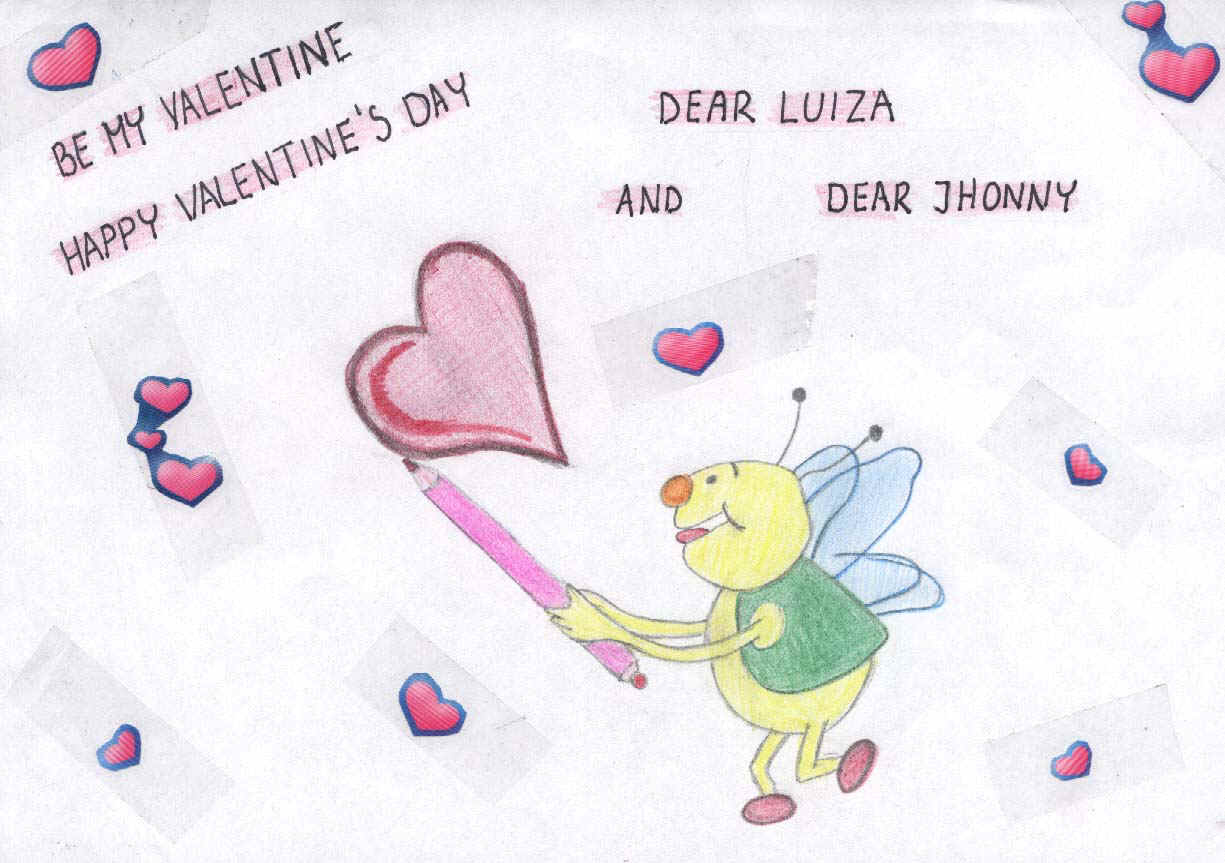 BE MY VALENTINE
HAPPY VALENTINE'S DAY
DEAR LUIZA
AND DEAR JHONNY